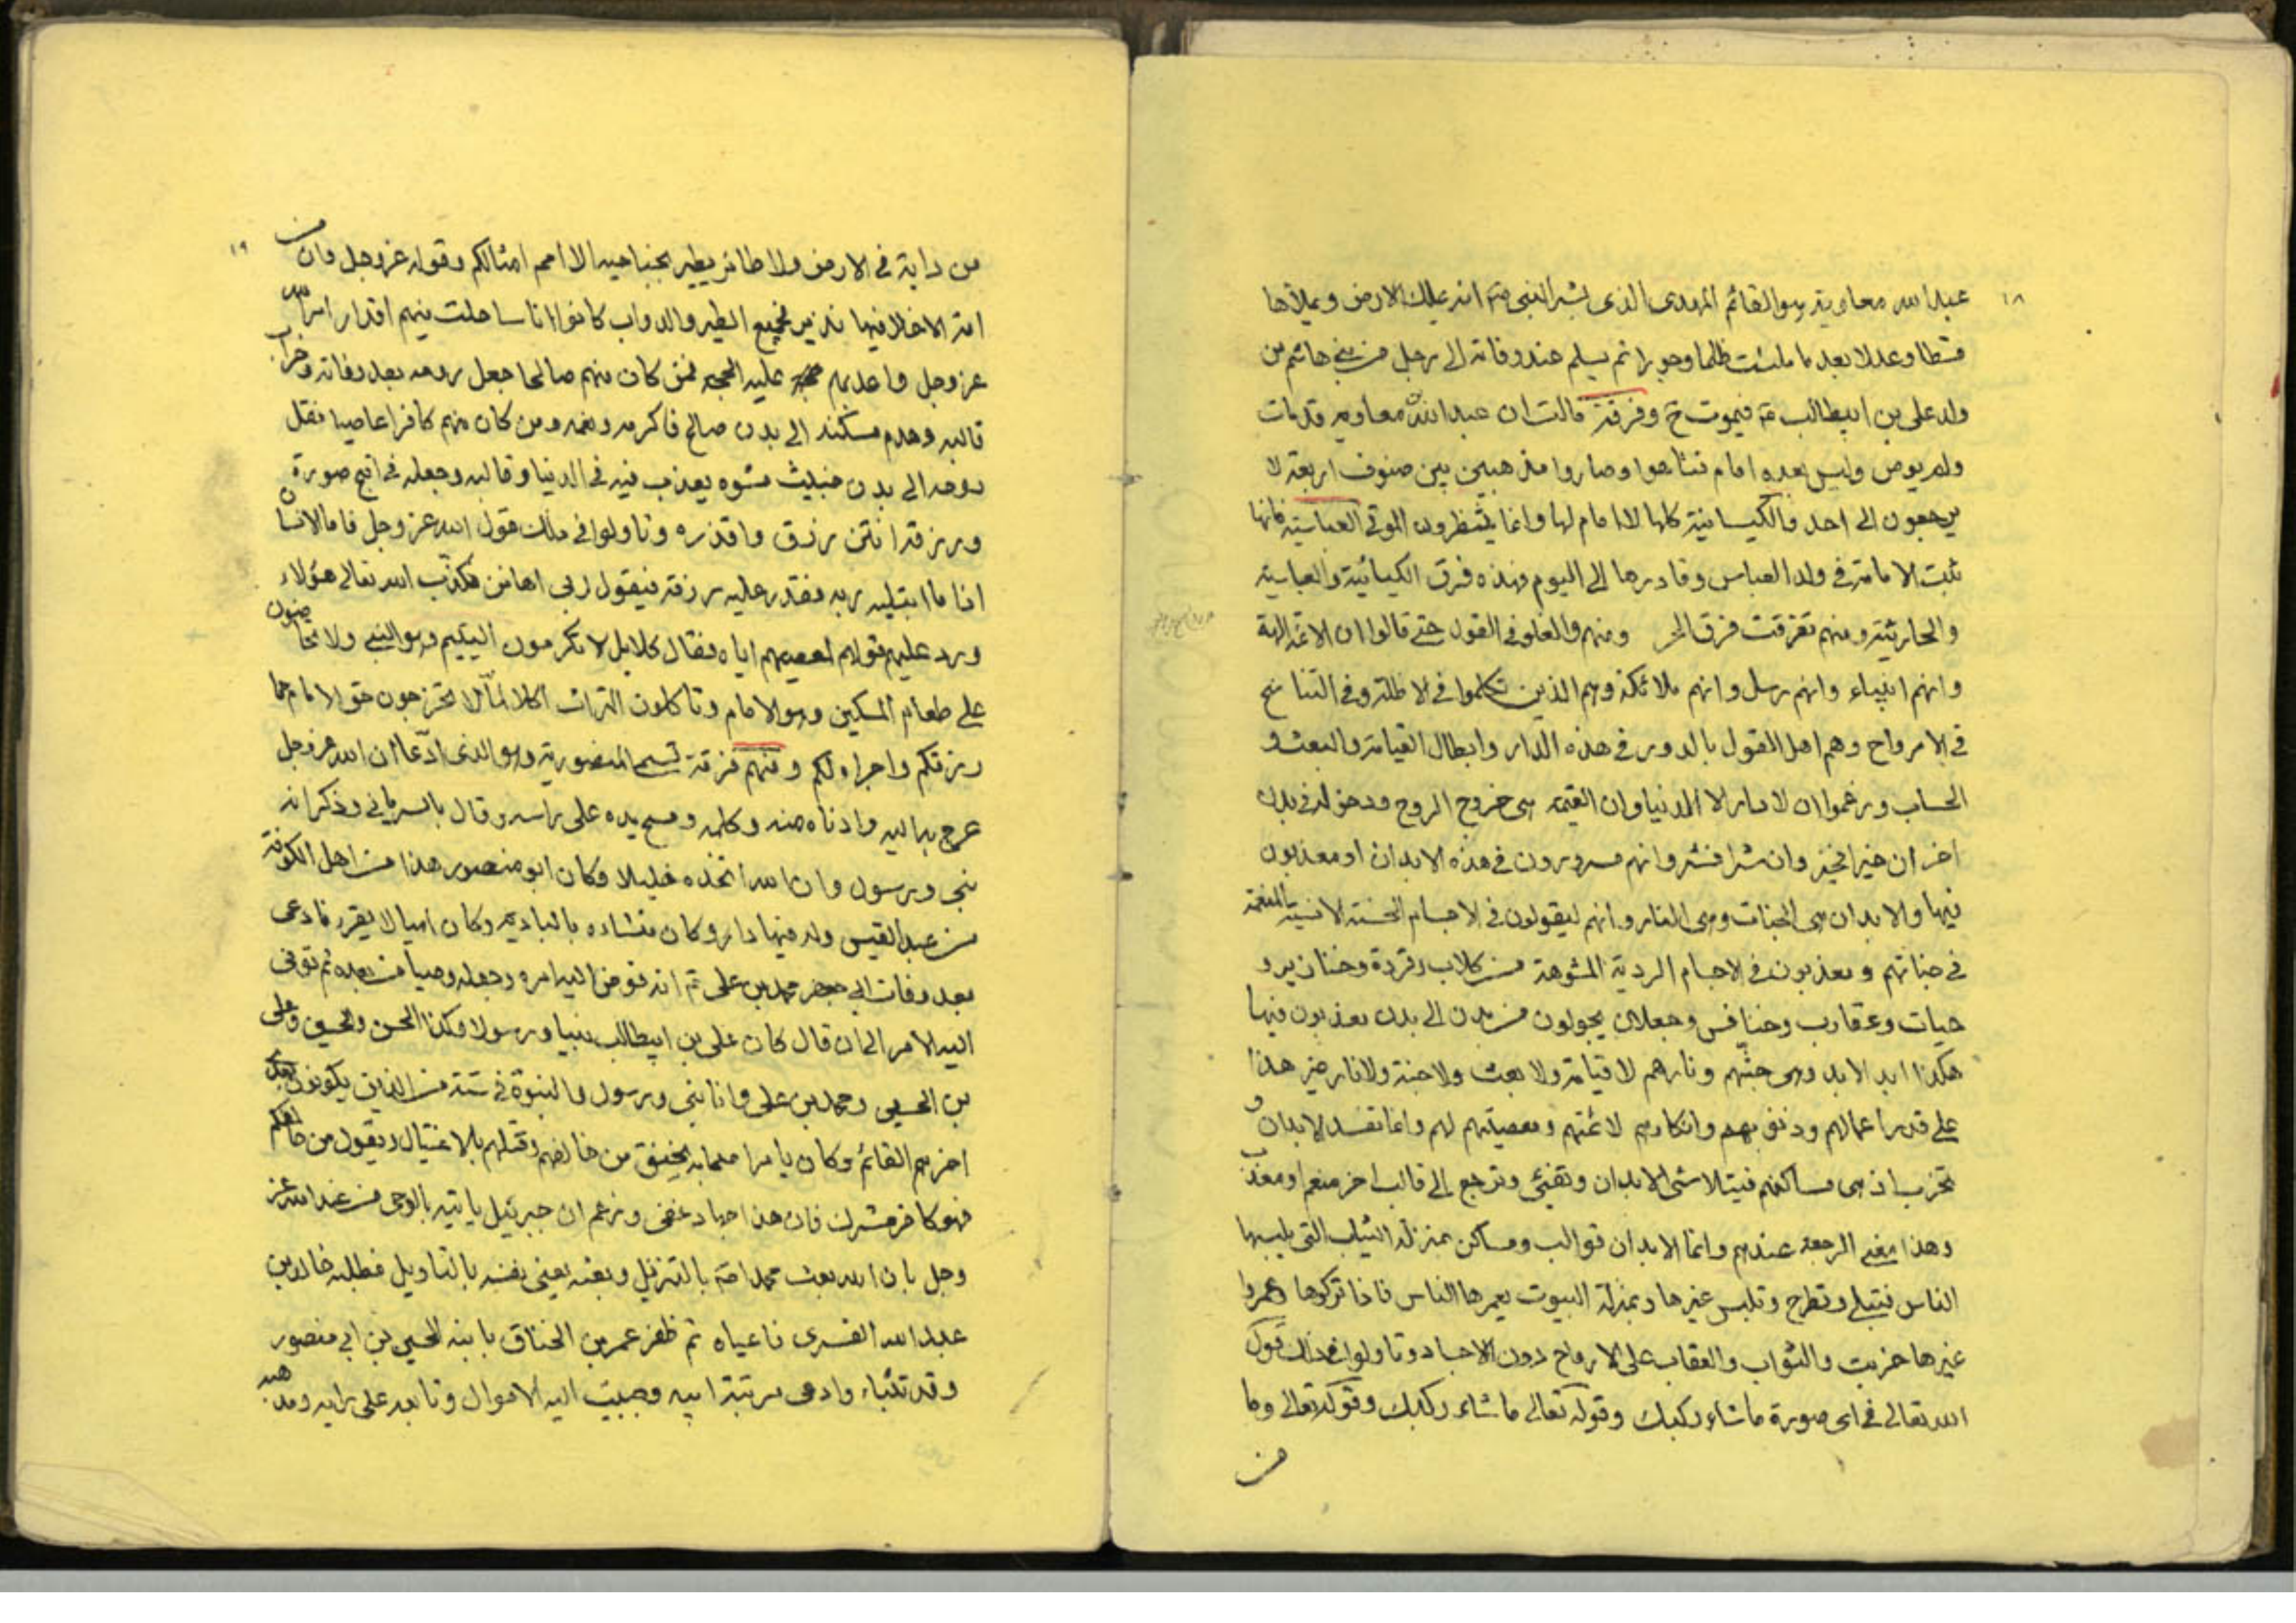 ١٨
عبد الله معاوية وهو القائم المهدى الذى بشر النبى ص انه يملك الارض ويملاها
قسطا وعدلا بعد ما ملئت ظلما وجورا ثم يسلم عند وفاته الى رجل من بنى هاشم من
ولد على بن ابيطالب ع فيموت ح وفرقة قالت ان عبد الله معاويه قد مات
ولم يوص وليس بعده امام فتاهوا وصاروا مذهبين بين صنوف اربعة لا
يرجعون الى احد فالكيسانية كلها لا امام لها وانما ينتظرون الموتى العباسية فانها
تثبت الامامة فى ولد العباس وقادرها الى اليوم فهذه فرق الكيسانية والعباسية
والحارثية ومنهم تفرقت فرق الخر ومنهم والغلو فى القول حتى قالوا ان الائمة الهة
وانهم انبياء وانهم رسل وانهم ملائكة وهم الذين تكلموا فى الاظلة وفى التناسخ
فى الارواح وهم اهل القول بالدور فى هذه الدار وابطال القيامة والبعث و
الحساب وزعموا ان لا دار الا الدنيا وان القيمة هى خروج الروح ودخوله فى بدن
اخر ان خيرا فخير وان شرا فشر وانهم مسرورون فى هذه الابدان او معذبون
فيها والابدان هى الجنات وهى النار وانهم ليقولون فى الاجسام الحسنة الانسية المنعمة
فى جناتهم ومعذبون فى الاجسام الردية المشوهة من كلاب وقردة وخنازير و
حيات وعقارب وخنافس وجعلان يحولون من بدن الى بدن معذبون فيها
هكذا ابد الابد وهى جنتهم ونارهم لا قيامة ولا بعث ولا جنة ولا نار غير هذا
على قدر اعمالهم وذنوبهم وانكارهم لائمتهم ومعصيتهم لهم وانما تفسد الابدان و
تخرب اذ هى مساكنهم فيتلاشى الابدان وتفنى وترجع الى قالب اخر منعم او معذب
وهذا معنى الرجعة عندهم وانما الابدان قوالب ومساكن بمنزلة الثياب التى يلبسها
الناس فتبلى وتطرح وتلبس غيرها وبمنزلة البيوت يعمرها الناس فاذا تركوها وعمروا
غيرها خربت والثواب والعقاب على الارواح دون الاجساد وتاولوا فى ذلك قول
الله تعالى فى اى صورة ما شاء ركبك وقوله تعالى ما شاء ركبك وقوله تعالى وما
من
١٩
من دابة فى الارض ولا طائر يطير بجناحيه الا امم امثالكم وقوله عز وجل وان من
امة الا خلا فيها نذير فجميع الطير والدواب كانوا اناسا خلت فيهم اقدار امر الله
عز وجل واعديهم عليه الحجة فمن كان منهم صالحا جعل روحه بعد وفاته وخراب
قالبه وهدم مسكنه الى بدن صالح فاكرمه ونعمه ومن كان منهم كافرا عاصيا فنقل
روحه الى بدن خبيث مشوه يعذب فيه فى الدنيا وقالبه وجعله فى اقبح صورة
ورزقه انتن رزق واقذره وتاولوا فى ذلك قول الله عز وجل فاما الانسان
اذا ما ابتليه ربه فقدر عليه رزقه فيقول ربى اهانن فكذب الله تعالى هؤلاء
ورد عليهم قولهم لمعصيتهم اياه فقال كلا بل لا تكرمون اليتيم وهو النبى ولا تحاضون
على طعام المسكين وهو الامام وتاكلون التراث اكلا لما لا تخرجون حق الامام مما
رزقكم واجراه لكم ومنهم فرقة تسمى المنصورية وهو الذى ادعا ان الله عز وجل
عرج به اليه وادناه منه وكلمه ومسح يده على راسه وقال بالسريانى وذكر انه
نبى ورسول وان الله اتخذه خليلا وكان ابو منصور هذا من اهل الكوفة
من عبد القيس وله فيها دار وكان منشاءه بالبادية وكان اميا لا يقرء فادعى
بعد وفات ابى جعفر محمد بن على ع انه فوض اليه امره وجعله وصيا من بعده ثم توفى
اليه الامر الى ان قال كان على بن ابيطالب نبيا ورسولا وكذا الحسن والحسين وعلى
بن الحسين ومحمد بن على وانا نبى ورسول والنبوة فى ستة من الذين يكونون بعدى
اخرهم القائم وكان يامر اصحابه بخنق من خالفهم وقتلهم بالاغتيال ويقول من خالفكم
فهو كافر مشرك فان هذا جهاد خفى وزعم ان جبرئيل ياتيه بالوحى من عند الله عز
وجل بان الله بعث محمدا ص بالتنزيل وبعثه يعنى نفسه بالتاويل فطلبه خالد بن
عبد الله القسرى فاعياه ثم ظفر عمر بن الخناق بابنه الحسين بن ابى منصور
وقد تنباء وادعى مرتبة ابيه وجبيت اليه الاموال وتابعه على رايه ومذهبه